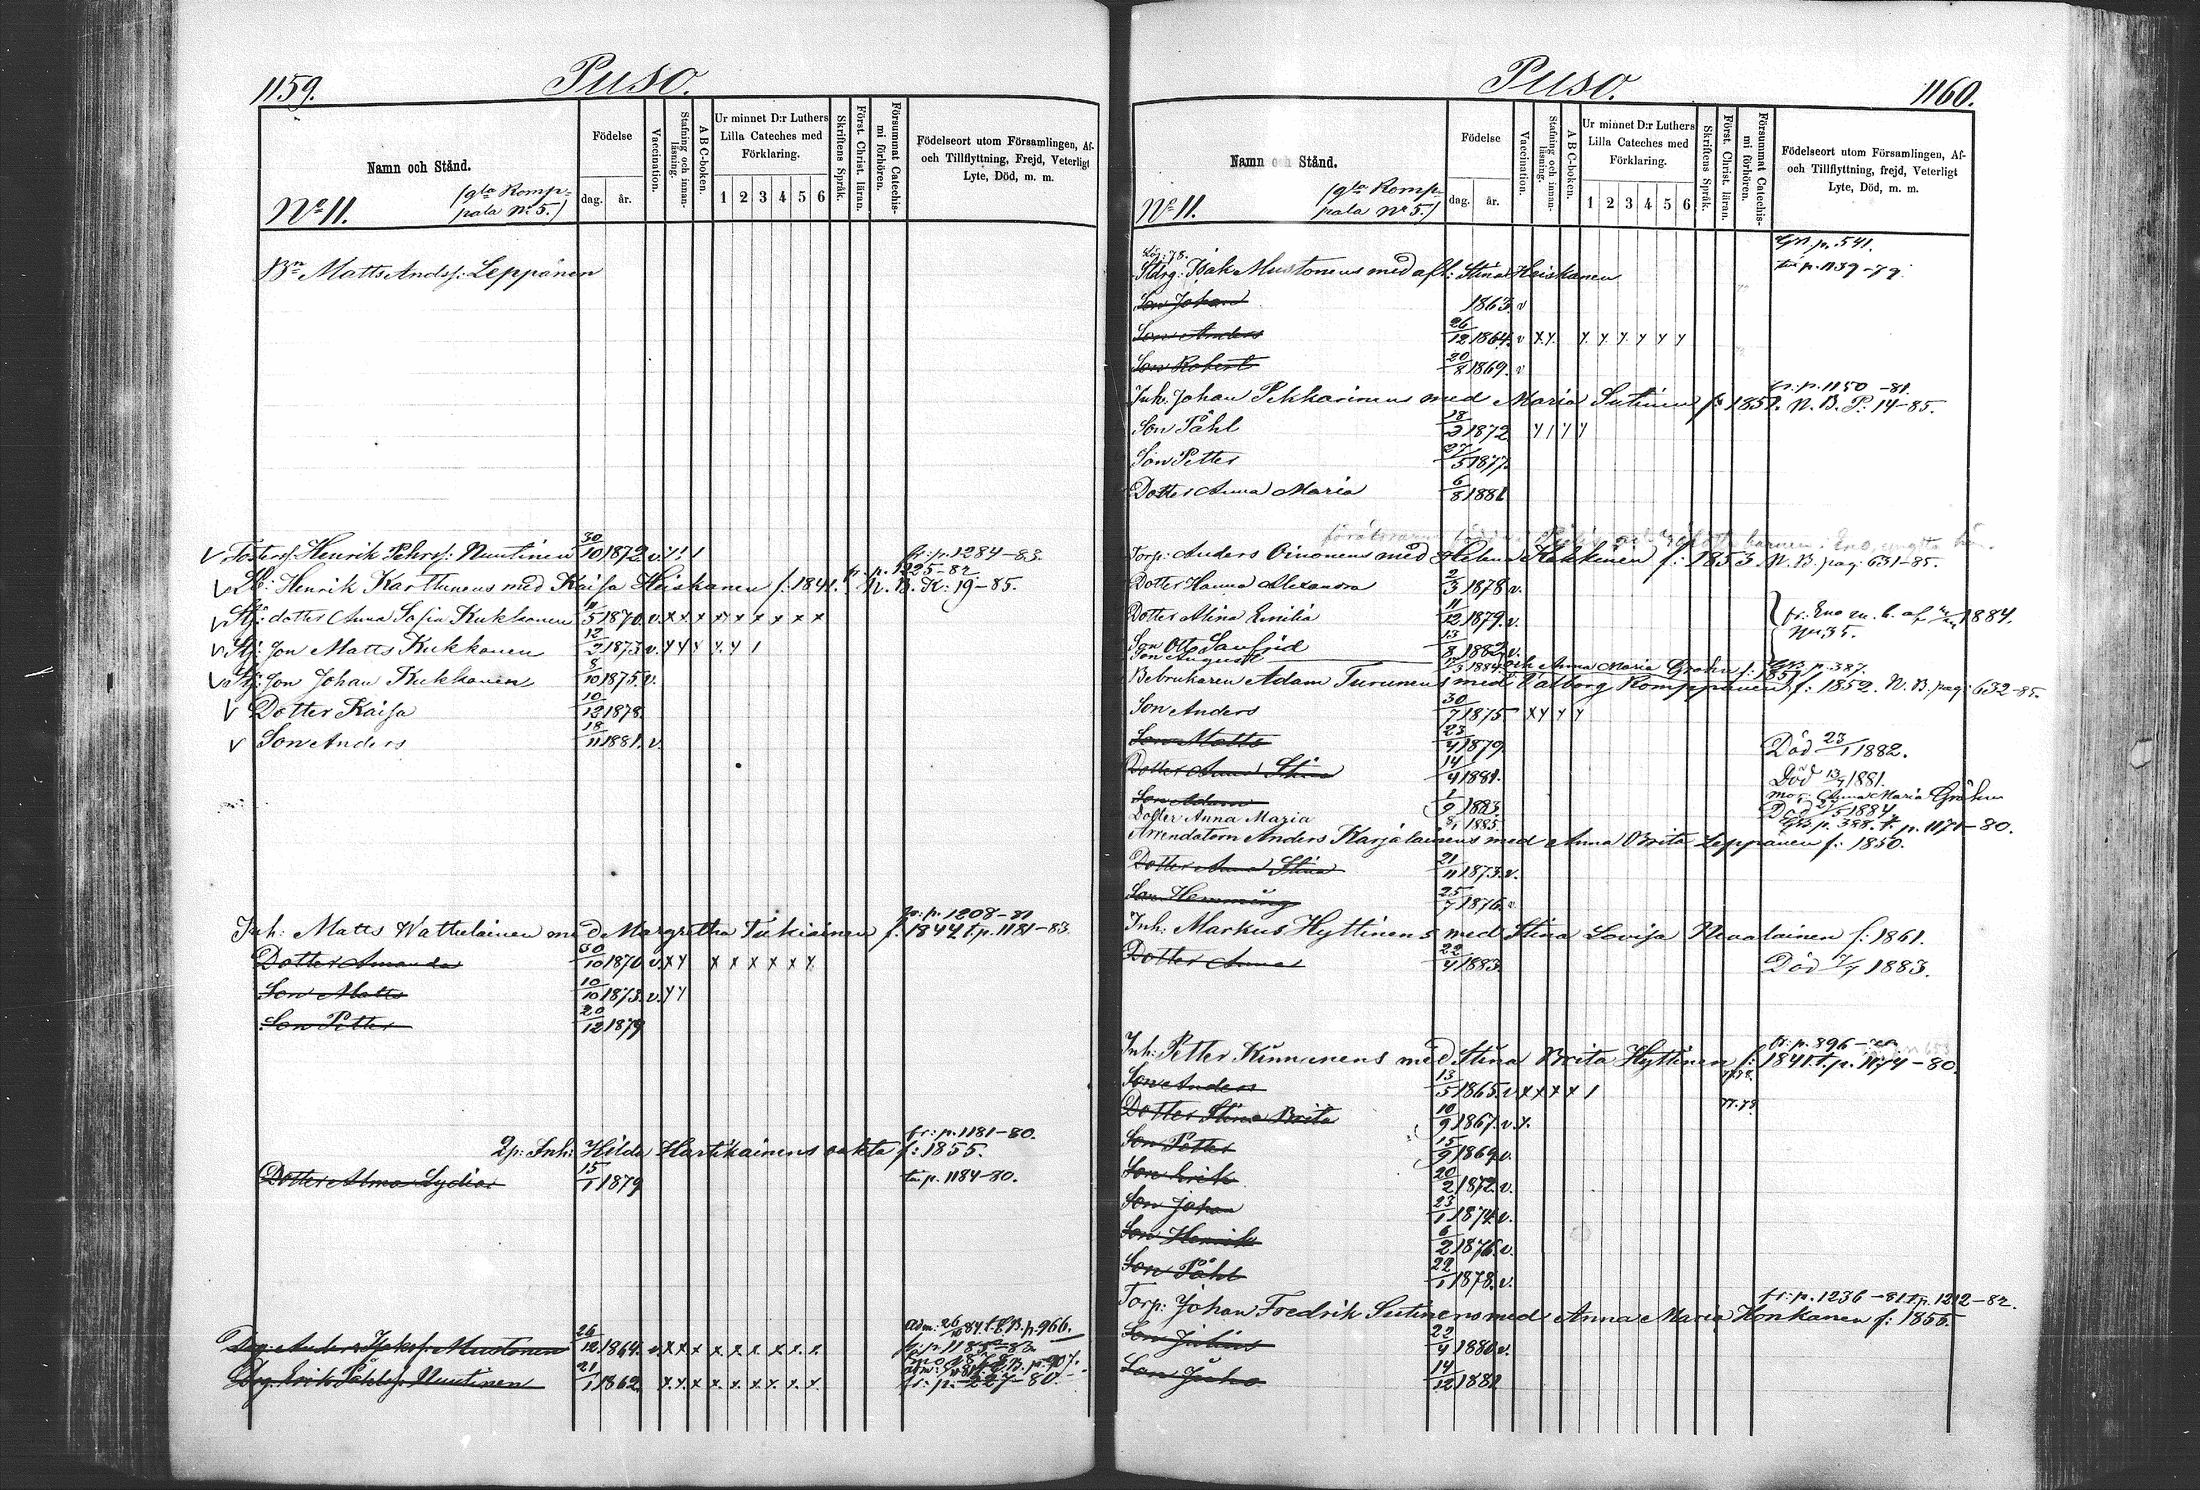 1159.
Puso.
Namn och Stånd.
Födelse
dag. år.
Vaccination.
Stafning och innanläsning.
ABC-boken.
Ur minnet D:r Luthers
Lilla Cateches med
Förklaring.
1 2 3 4 5 6
Skriftens Språk.
Först. Christ. läran.
Försummat Catechismi förhören.
Födelseort utom Församlingen, Af-
och Tillflyttning, Frejd, Veterligt
Lyte, Död, m. m.
No 11. (gla Romp-
pala No 5.)
Bn Matts Andsf: Leppänen
v Fosters: Henrik Pehrsf: Nuutinen 30/10 1872 v. fr: p. 1284-83.
v Henrik Karttunens med Kaisa Heiskanen f. 1841. fr. p. 1225-82 N. B. K: 19-85.
v Stj: dotter Anna Sofia Kukkonen 11/5 1870 v. x x x x x x x x x
v Stj: Son Matts Kukkonen 12/2 1873 v.
v Stj: Son Johan Kukkonen 8/10 1875 v.
v Dotter Kaisa 10/12 1878.
v Son Anders 18/11 1881. v.
fr: p. 1208-81
Inh: Matts Wattulainen med Margretha Tukiainen f. 1842 t. p. 1181-83
Dotter Amanda 30/10 1870 v. x x x x x x x x
Son Matts 10/10 1873. v.
Son Petter 20/12 1879
fr: p. 1181-80.
2p: Inh: Hilda Hartikainens oäkta f: 1855.
Dotter Alma Lydia 15/1 1879 tu p. 1184-80.
Drg: Anders Isaksf: Mustonen 26/12 1864. v. x x x x x x x x x adm: 26/10 84. L. C. B. p. 966.
Drg. Erik Påhlsf: Nuutinen 21/1 1862. x x x x x x x x x fr: p. 227-80.
Puso.
1160.
Namn och Stånd.
Födelse
dag. år.
Vaccination.
Stafning och innanläsning.
ABC-boken.
Ur minnet D:r Luthers
Lilla Cateches med
Förklaring.
1 2 3 4 5 6
Skriftens Språk.
Först. Christ. läran.
Försummat Catechismi förhören.
Födelseort utom Församlingen, Af-
och Tillflyttning, frejd, Veterligt
Lyte, Död, m. m.
No 11. (gla Romp-
pala No 5.)
Isak Mustonens med afl: Stina Heiskanen p. 541. tu p. 1139-79.
Son Johan 1863. v
Son Anders 26/12 1864. v x x
Son Robert 20/8 1869. v
fr: p. 1150-81.
Inh. Johan Pekkarinens med Maria Sutinen f: 1851. N. B. P: 14-85.
Son Påhl 18/2 1872
Son Petter 27/5 1877.
Dotter Anna Maria 6/8 1881
Torp: Anders Oinonens med Helena Kekkinen f: 1853. N. B. pag: 631-85.
Dotter Hanna Alexandra 2/3 1878 v.
Dotter Alina Emilia 11/12 1879. v. fr: Eno m. b. af 1884.
Son Otto Sanfrid 13/8 1882 v. No 35.
Son August 1884. och Anna Maria Gråhn f: 1857 p. 387.
Brukaren Adam Turunens med Valborg Romppanen f: 1852. N. B. pag: 632-85.
Son Anders 30/7 1875
Son Matts 23/4 1879. Död 23/1 1882.
Dotter Anna Stina 14/4 1881. Död 13/7 1881.
Son Adam 1/9 1883. mor: Anna Maria Gråhn Död 27/5 1884
Dotter Anna Maria 8/1 1885. p. 388. t. p. 1171-80.
Arrendatorn Anders Karjalainens med Anna Brita Leppänen f: 1850.
Dotter Anna Stina 21/11 1873. v.
Son Hemming 25/7 1876. v.
Inh: Markus Hyttinens med Stina Lovisa Nevalainen f: 1861.
Dotter Anna 22/4 1883. Död 7/7 1883.
fr: p. 896
Inh: Petter Kinnunens med Stina Brita Hyttinen f: 1841. t. p. 1174-80.
Son Anders 13/5 1865. v x x x x 1 77.78.
Dotter Stina Brita 10/9 1867. v. x. 77.78
Son Petter 15/9 1869. v.
Son Erik 20/2 1872. v.
Son Johan 23/1 1874. v.
Son Henrik 6/2 1876. v.
Son Påhl 22/1 1878. v.
fr: p. 1236-81 t. p. 1212-82.
Torp: Johan Fredrik Sutinens med Anna Maria Honkanen f: 1855.
Son Julius 22/4 1880. v.
Son Juho 14/12 1881